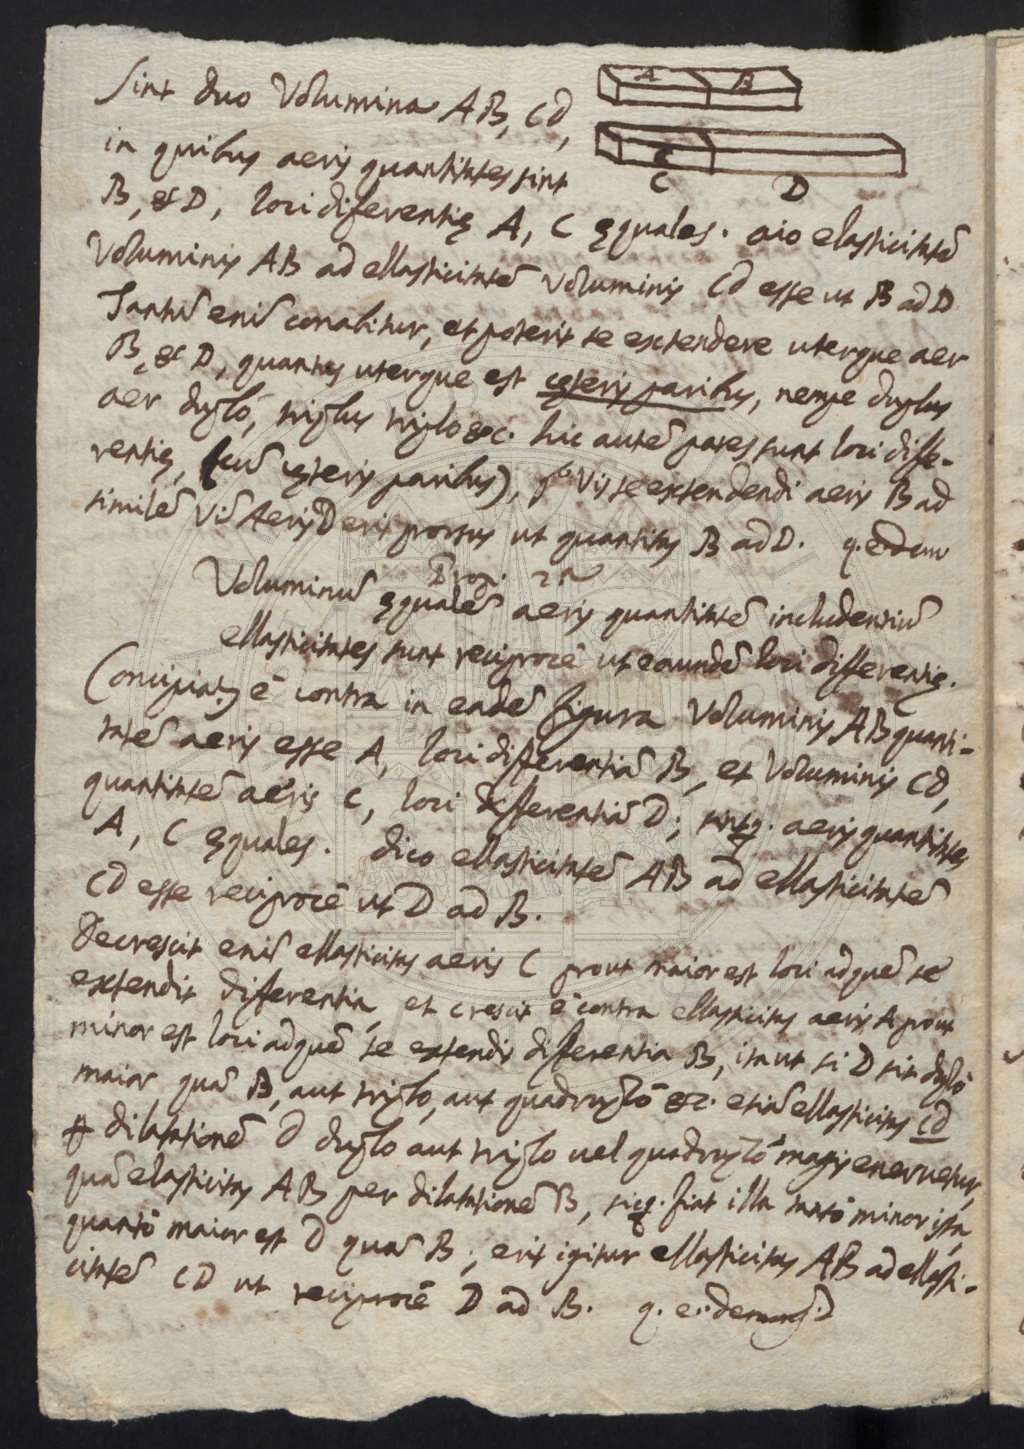 Sint duo Volumina AB, CD,
A B
in quibus aeris quantitates sint
C D
B, & D, loci differentię A, C ęquales. aio elasticitatē
Voluminis AB ad ellasticitatē voluminis CD esse ut B ad D
Tantū enī conabitur, et poterit se extendere uterque aer
B, & D, quantus uterque est cęteris paribus, nempe duplus
aer duplò, triplus triplo &c. hic autē pares sunt loci diffe-
rentię, (cū cęteris paribus), gº Vis se extendendi aeris B ad
similē Vī Aeris D erit prorsus ut quantitas B ad D. q. e dem
Prop. 2ª
Voluminū ęqualē aeris quantitatē includentiū
ellasticitates sunt reciprocè ut earundē loci differentię.
Concipiatʒ ē contra in eadē figura Voluminis AB quanti-
tatē aeris esse A, loci differentiā B, et Voluminis CD,
quantitatē aeris C, loci differentiā D; sintq. aeris quantitates
A, C ęquales. dico ellasticitatē AB ad ellasticitatē
CD esse reciprocè ut D ad B.
Decrescit enī ellasticitas aeris C prout maior est loci ad quē se
extendit differentia, et crescit è contra ellasticitas aeris A prout
minor est loci ad quē se extendit differentia B, ita ut si D sit duplò
maior quā B, aut triplo, aut quadruplò &c. etiā ellasticitas CD
ꝑ dilatationē D duplo aut triplo uel quadruplò magis eneruetur,
quā elasticitas AB per dilatationē B, sicq. fiat illa tantò minor ista,
quantò maior est D quā B; erit igitur ellasticitas AB ad ellasti-
citatē CD ut reciprocè D ad B. q. e. dem